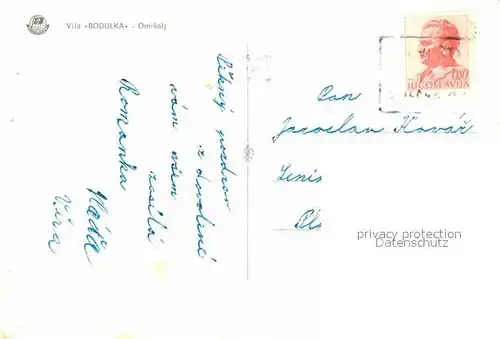 Vila «BODULKA» - Omišalj
Pěkný pozdrav
z dovolené
vám všem
zasílá
Romanka
Vláďa
Věra
0.80
JUGOSLAVIJA
Pan
Jaroslav Kovář
privacy protection
Datenschutz